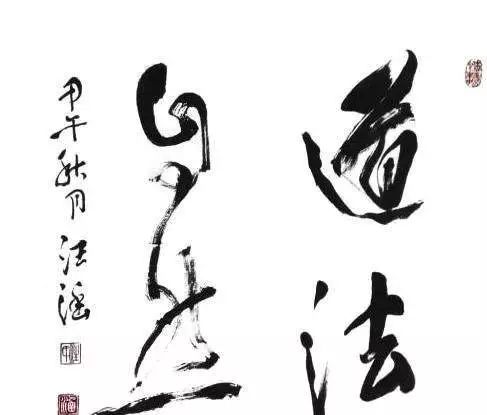 道法
自然
甲午秋月汪瑶